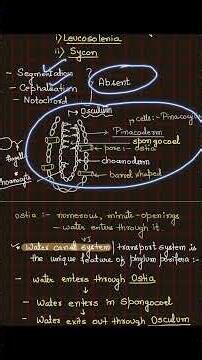 i) Leucosolenia
ii) Sycon
- Segmentation
- Cephalisation
- Notochord
Absent
Osculum
cells:- Pinacocyte
Pinacoderm
spongocoel
pore:- ostia
choanoderm
barrel shaped
ostia :- numerous, minute openings
- water enters through it.
* Water canal system / transport system is
the unique feature of phylum porifera :-
- water enters through Ostia
↓
- Water enters in Spongocoel
↓
- Water exits out through Osculum